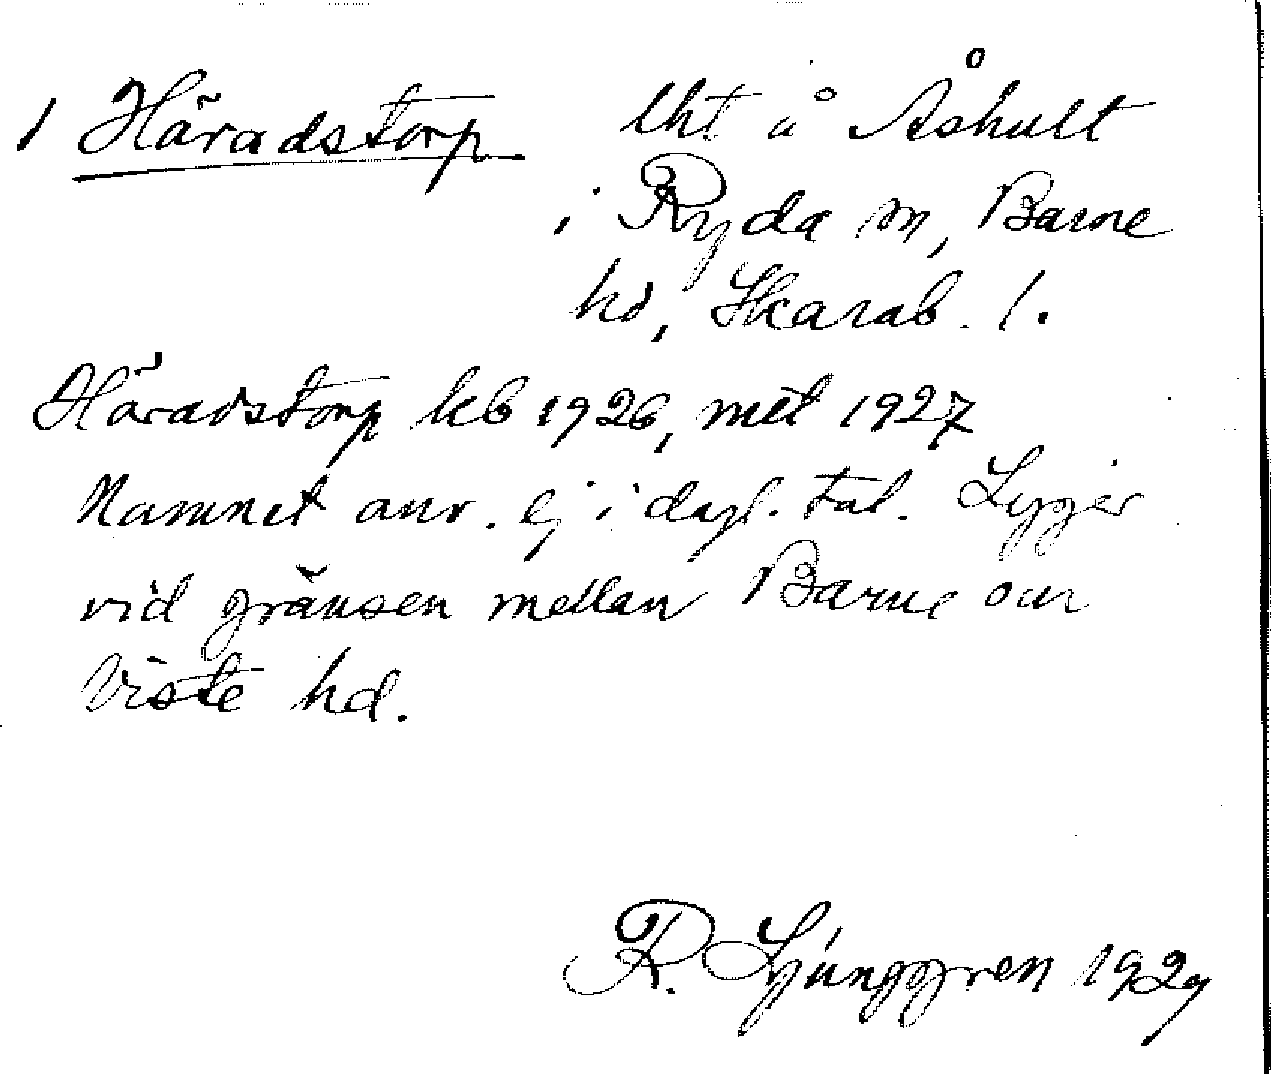 1 Häradstorp lht å Åshult
i Ryda sn, Barne
hd, Skarab. l.
Häradstorp kb 1926, mtl 1927
Namnet anv. ej i dagl. tal. Ligger
vid gränsen mellan Barne och
Viste hd.
R. Ljunggren 1929